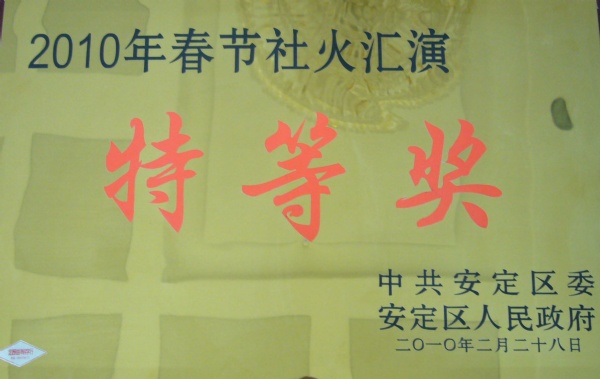 2010年春节社火汇演
特等奖
中共安定区委
安定区人民政府
二〇一〇年二月二十八日